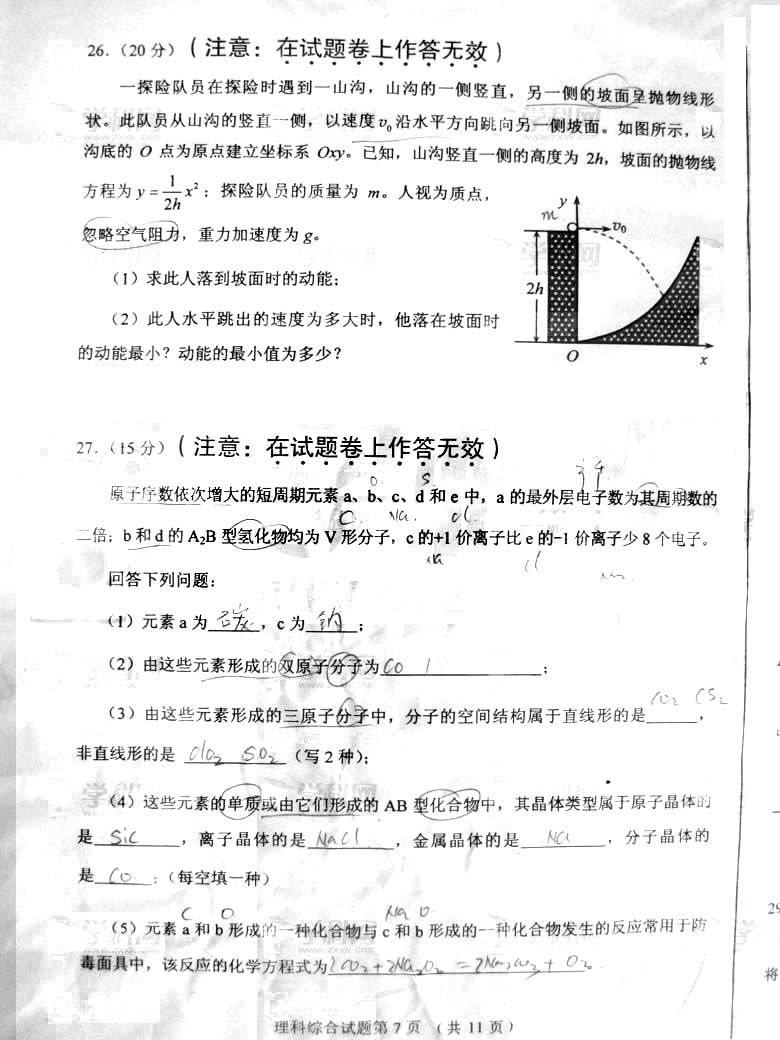 26.（20分）（注意：在试题卷上作答无效）
一探险队员在探险时遇到一山沟，山沟的一侧竖直，另一侧的坡面呈抛物线形
状。此队员从山沟的竖直一侧，以速度v₀沿水平方向跳向另一侧坡面。如图所示，以
沟底的O点为原点建立坐标系Oxy。已知，山沟竖直一侧的高度为2h，坡面的抛物线
方程为y=\frac{1}{2h}x²；探险队员的质量为m。人视为质点，
忽略空气阻力，重力加速度为g。
（1）求此人落到坡面时的动能；
（2）此人水平跳出的速度为多大时，他落在坡面时
的动能最小？动能的最小值为多少？
m
y
v₀
2h
O
x
27.（15分）（注意：在试题卷上作答无效）
O S
原子序数依次增大的短周期元素a、b、c、d和e中，a的最外层电子数为其周期数的
C Na cl
二倍；b和d的A₂B型氢化物均为V形分子，c的+1价离子比e的-1价离子少8个电子。
Na cl
回答下列问题：
（1）元素a为碳，c为钠；
（2）由这些元素形成的双原子分子为CO；
CO₂ CS₂
（3）由这些元素形成的三原子分子中，分子的空间结构属于直线形的是，
非直线形的是 clo₂ SO₂（写2种）；
（4）这些元素的单质或由它们形成的AB型化合物中，其晶体类型属于原子晶体的
是 SiC，离子晶体的是 NaCl，金属晶体的是 Na，分子晶体的
是 CO；（每空填一种）
C O Na O
（5）元素a和b形成的一种化合物与c和b形成的一种化合物发生的反应常用于防
毒面具中，该反应的化学方程式为2CO₂+2Na₂O₂=2Na₂CO₃+O₂.
理科综合试题第7页（共11页）
29
将